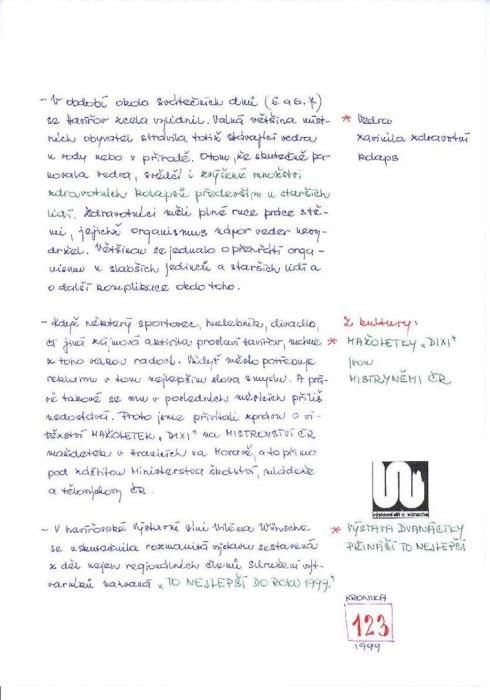 - V období okolo svátečních dnů (5. a 6. 7.)
se Havířov zcela vylidnil. Valná většina míst-
ních obyvatel strávila totiž stávající vedra
u vody nebo v přírodě. O tom, že skutečně pa-
novala vedra, svědčí i zvýšené množství
zdravotních kolapsů především u starších
lidí. Zdravotníci měli plné ruce práce s tě-
mi, jejichž organismus nápor veder nevy-
držel. Většinou se jednalo o přehřátí orga-
nismu u slabších jedinců a starších lidí a
o další komplikace okolo toho.
* Vedra
zavinila zdravotní
kolaps
- Když některý sportovec, hudebník, divadlo,
či jiná zájmová aktivita proslaví Havířov,
z toho velkou radost. Vždyť město potřebuje
reklamu v tom nejlepším slova smyslu. A prá-
vě takové se mu v posledních měsících příliš
nedostává. Proto jsme přivítali zprávu o ví-
tězství MAŽORETEK „DIXI" na MISTROVSTVÍ ČR
mažoretek v Hranicích na Moravě, a to přímo
pod záštitou Ministerstva školství, mládeže
a tělovýchovy ČR.
Z kultury:
* MAŽORETKY „DIXI"
jsou
MISTRYNĚMI ČR
výstavní síň v. wünsche
- V havířovské Výstavní síni Viléma Wünscheho
se uskutečnila rozmanitá výstava sestavená
z děl nejen regionálních členů Sdružení výt-
varníků nazvaná „TO NEJLEPŠÍ DO ROKU 1999."
* VÝSTAVA DVANÁCTKY
PŘINÁŠÍ TO NEJLEPŠÍ
KRONIKA
123
1999